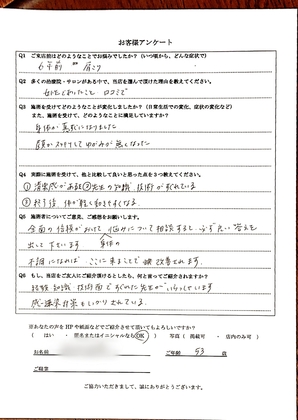 お客様アンケート
Q1 ご来店前はどのようなことでお悩みでしたか?（いつ頃から、どんな症状で）
6年前 肩こり
Q2 多くの治療院・サロンがある中で、当店を選んで頂けた理由を教えてください。
口コミで
Q3 施術を受けてどのようなことが変化しましたか?（日常生活での変化、症状の変化など）
また、施術を受けて、どのようなことに満足していますか?
身体が真直になりました
顔がスッキリしてゆがみが無くなった
Q4 実際に施術を受けて、他と比較して良いと思った点を3つ教えてください。
①清潔感がある②先生の知識 技術が優れている
③終了後、体が軽く動きやすくなる
Q5 施術者についてご意見、ご感想をお願いします。
全面の信頼がおけて 悩みについて相談すると、必ず良い答えを
出して下さいます 身体の
不調になれば ここに来ることで 改善されます
Q6 もし、当店をご友人にご紹介頂けるとしたら、何と言ってご紹介しますか?
経験 知識 技術面ですぐれた先生がいらっしゃいます
感染対策もしっかりされている。
※あなたの声をHPや紙面などでご紹介させて頂いてもよろしいですか?
（ はい ・ 匿名またはイニシャルならOK ） 写真（ 掲載可 ・ 店内のみ可 ）
お名前 ご年齢 53 歳
ご職業
ご協力いただきまして、誠にありがとうございます。